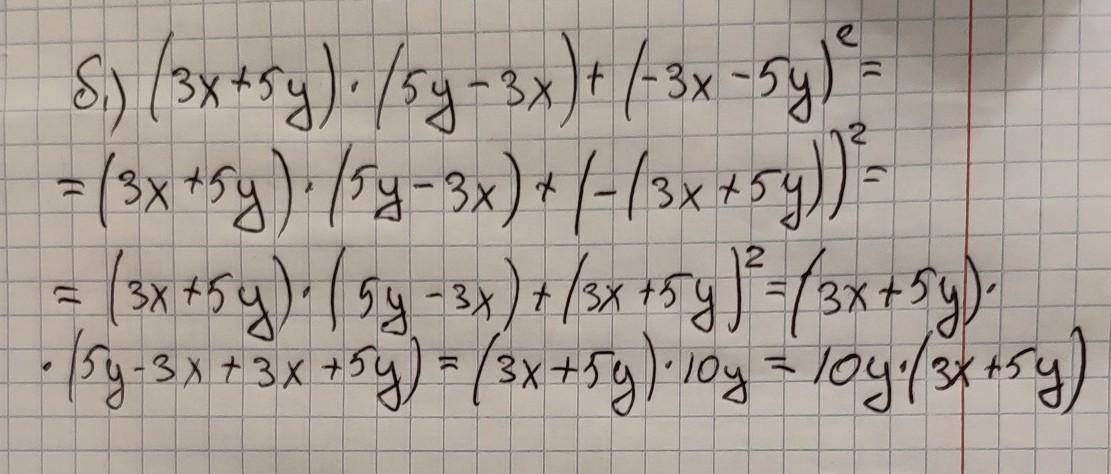 б.) (3x+5y)·(5y-3x)+(-3x-5y)²=
=(3x+5y)·(5y-3x)+(-(3x+5y))²=
=(3x+5y)·(5y-3x)+(3x+5y)²=(3x+5y)·
·(5y-3x+3x+5y)=(3x+5y)·10y=10y·(3x+5y)